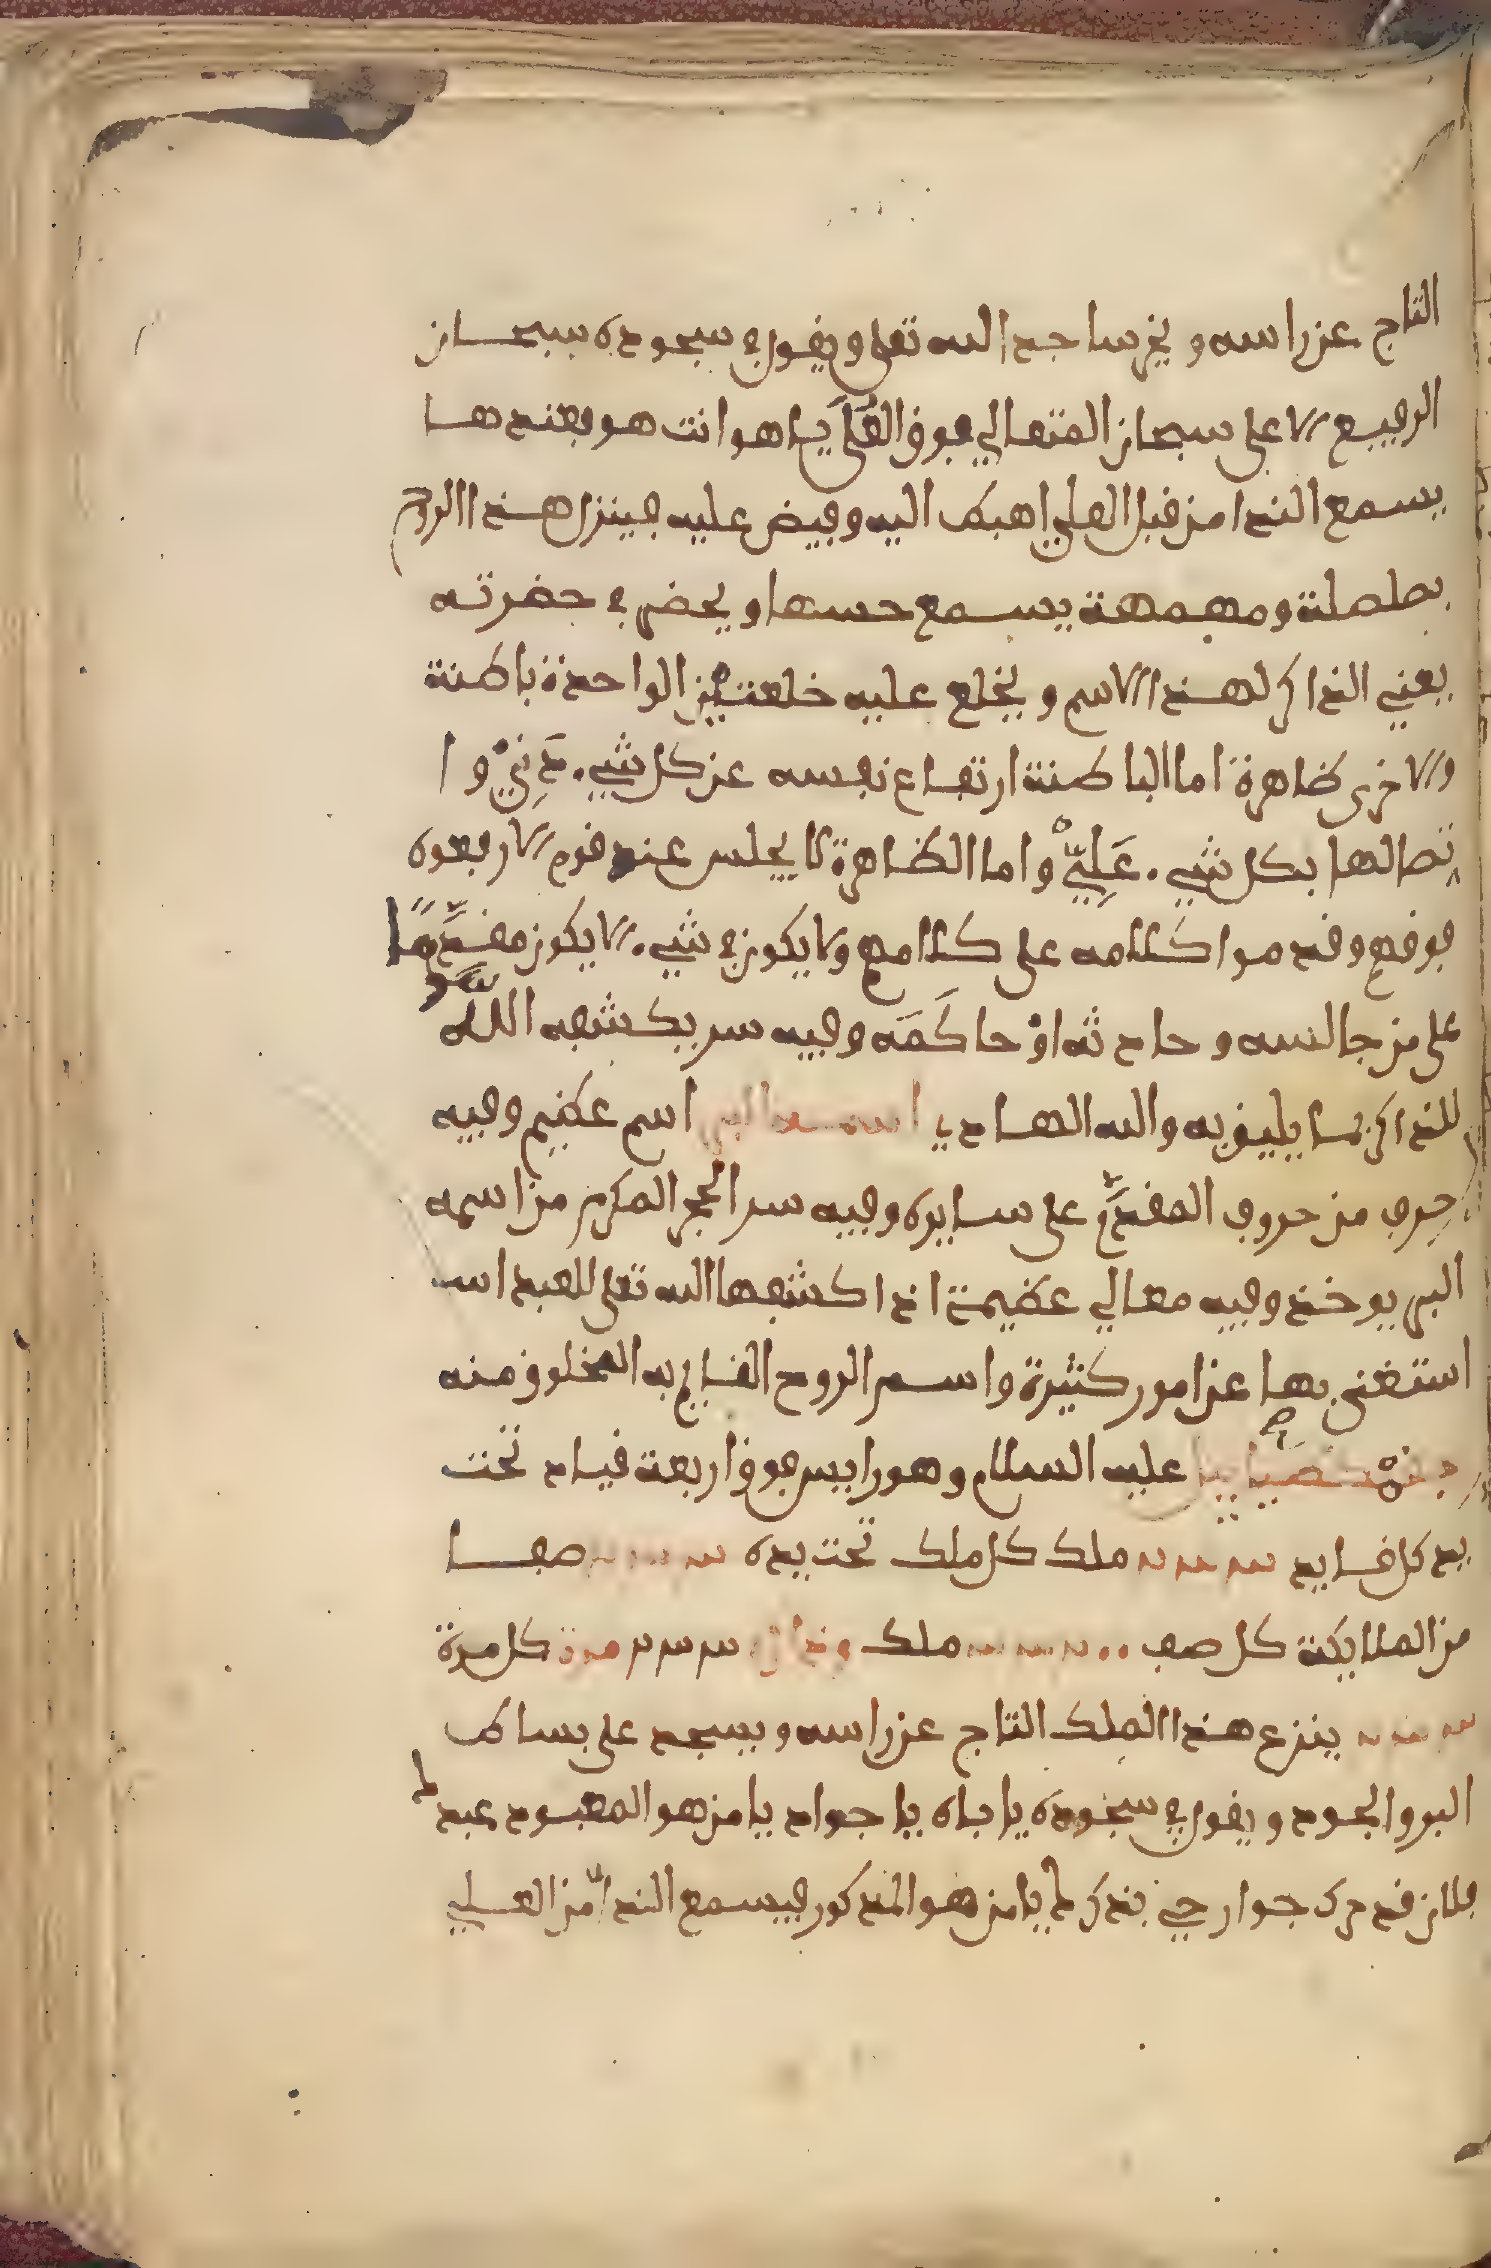 التاج عن راسه ويخر ساجدا لله تعلى ويقول في سجوده سبحان
الرفيع الاعلى سبحان المتعالي فوق العُلَى يا هو انت هو فعندها
يسمع الندا من قبل العلي اهبط اليه وفيض عليه فينزل هذا الروح
بصلصلة ومهمهة يسمع حسها ويحضر في حضرته
يعني الذاكر لهذا الاسم ويخلع عليه خلعتين الواحدة باطنة
والاخرى ظاهرة اما الباطنة ارتفاع نفسه عن كل شيء دَنِيْ وا
تصالها بكل شيء عَلِيّ واما الظاهرة لا يجلس عند قوم الا رفعوه
فوقهم وقدموا كلامه على كلامهم ولا يكون في شيء الا يكون مقدَّمًا
على من جالسه وحادثه اوْ حاكَمَه وفيه سر يكشفه اللَّه
للذاكر بما يليق به والله الهادي اسمه البر اسم عظيم وفيه
حرف من حروف المقدَّم على سايره وفيه سر الحجر المكرم من اسمه
البر يوخذ وفيه معالي عظيمة اذا كشفها الله تعلى للعبد
استغنى بها عن امور كثيرة واسم الروح القايم به المخلوق منه
عليه السلام وهو رايس فوق اربعة قياد تحت
يد كل قايد ملك كل ملك تحت يده صفا
من الملايكة كل صف ملك مرة كل مرة
ينزع هذا الملك التاج عن راسه ويسجد على بساط
البر والجود ويقول في سجوده يا باه يا جواد يا من هو المعبود عبدك
فلان قد حرك جوارحي بذكرك يا من هو المذكور فيسمع الندا من العلي